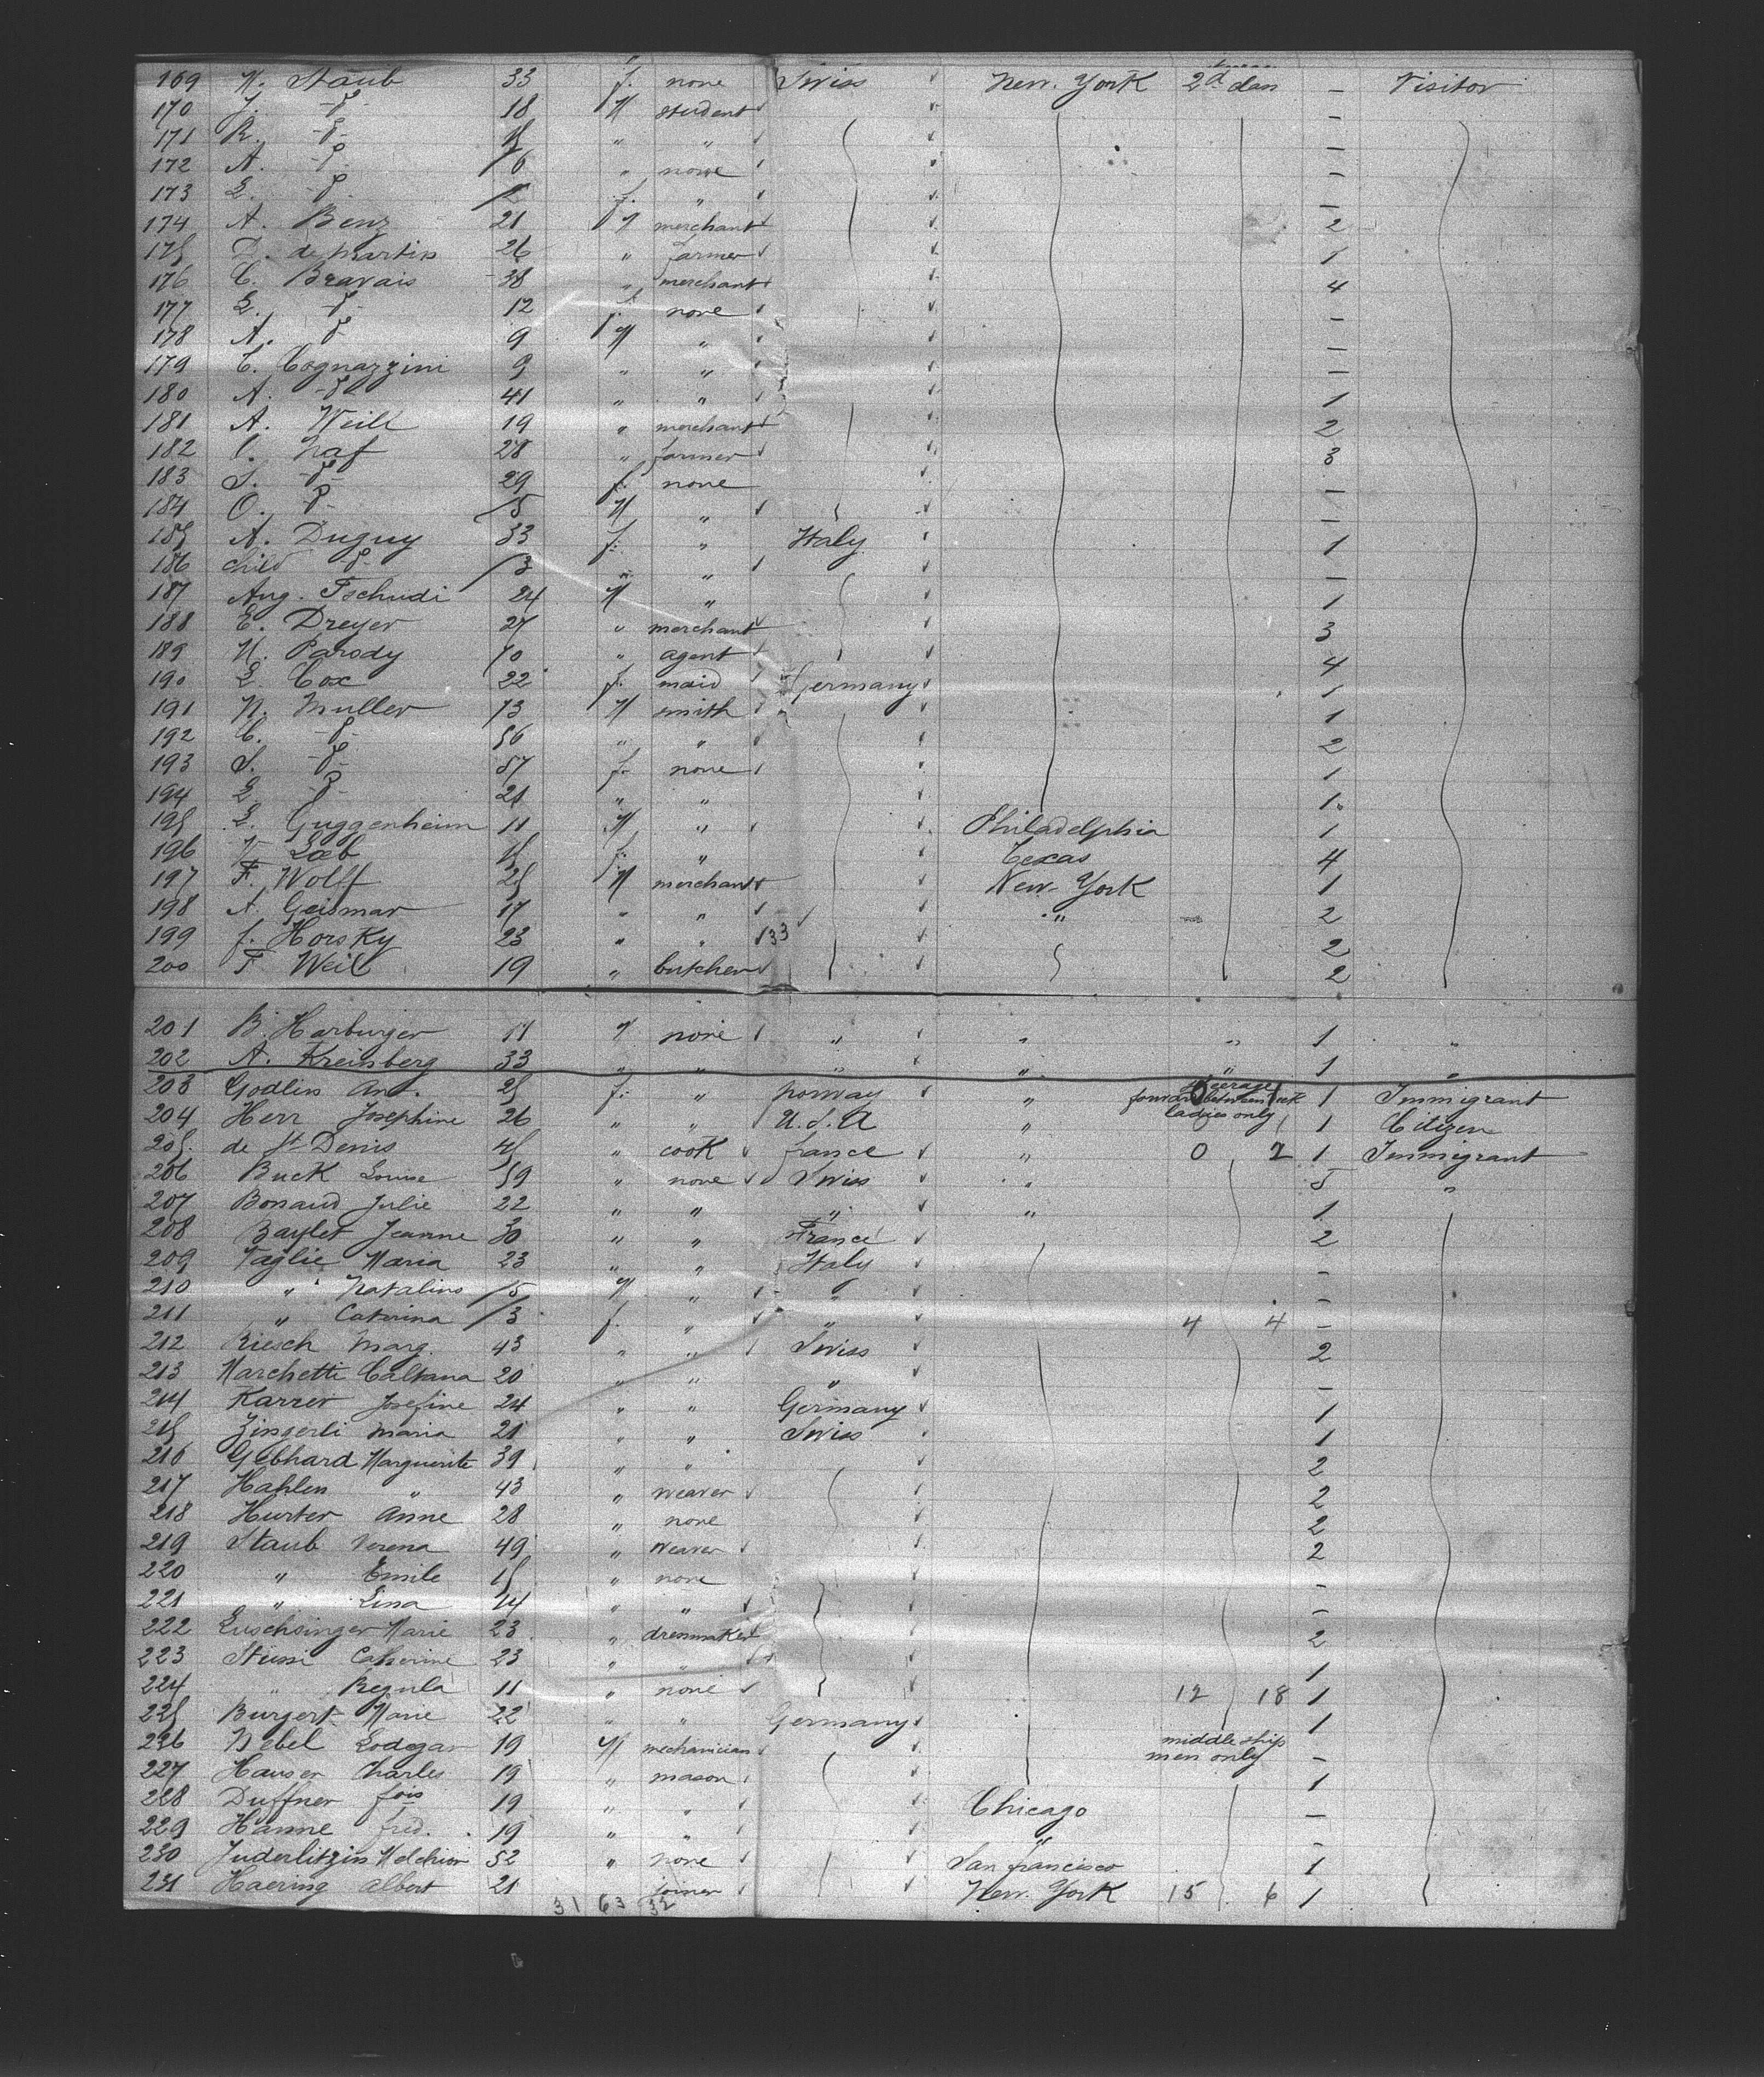 169 N. Staub 33 f. none Swiss New-York 2d clan — Visitor
170 J. -d°- 18 M student —
171 R. -d°- 15 " " —
172 A. -d°- 6 " none —
173 E. -d°- f. " —
174 A. Benz 21 M merchant 2
175 D. de Martin 26 " farmer 1
176 C. Bravais 38 " merchant 4
177 E. -d°- 12 f. none —
178 A. -d°- 9 M " —
179 C. Cognazzini 9 " " —
180 A. -d°- 41 " " 1
181 A. Weill 19 " merchant 2
182 C. Naf 28 " farmer 3
183 S. -d°- 29 f. none —
184 O. -d°- /5 M " —
185 A. Duguy 33 f. " Italy 1
186 child -d°- /3 " " —
187 Aug. Tschudi 24 M " 1
188 E. Dreyer 27 " merchant 3
189 N. Parody 70 " agent 4
190 E. Cox 22 f. maid Germany 1
191 N. Muller 73 M smith 1
192 C. -d°- 56 " " 2
193 S. -d°- 57 f. none 1
194 E -d°- 21 " " 1
195 E. Guggenheim 11 M " Philadelphia 1
196 Loeb 15 f. " Texas 4
197 F. Wolff 25 M merchant New-York 1
198 A. Geismar 17 " " " 2
199 f. Horsky 23 " " 33 2
200 F Weil 19 " butcher 2
201 B. Harburger 17 M none " " " 1 "
202 A. Kreinsberg 33 " " " " " 1 "
203 Godlin An. 25 f. " norway " steerage forward between deck 1 Immigrant
204 Herr Josephine 26 " " U.S.A " ladies only 1 Citizen
205. de St Denis 45 " cook france " 0 2 1 Immigrant
206 Buck Louise 59 " none Swiss " 5 "
207 Bonaud Julie 22 " " " " 1
208 Baylet Jeanne 30 " " France 2
209 Taglie Maria 23 " " Italy —
210 " Natalino /5 M " " —
211 " Caterina /3 f. " " 4 4 —
212 Riesch Marg. 43 " " Swiss 2
213 Marchetti Caltana 20 " " " —
214 Karrer Josefine 24 " " Germany 1
215 Zingerli Maria 21 " " Swiss 1
216 Gebhard Marguerite 39 " " 2
217 Hahlen " 43 " weaver 2
218 Hurter Anne 28 " none 2
219 Staub Verena 49 " weaver 2
220 " Emile 15 " none —
221 " Lina 14 " " —
222 Luschsinger Marie 23 " dressmaker 2
223 Stüssi Catherine 23 " " 1
224 " Regula 11 " none 12 18 1
225 Burgert Marie 22 " " Germany 1
226 Nebel Lodegar 19 M mechanician middle ship men only —
227 Hauser Charles 19 " mason 1
228 Duffner fois 19 " " Chicago —
229 Hanne fred. 19 " " " —
230 Juderlitzin Melchior 52 " none San francisco 1
231 Haering Albert 21 joiner New-York 15 6 1
31 63 32